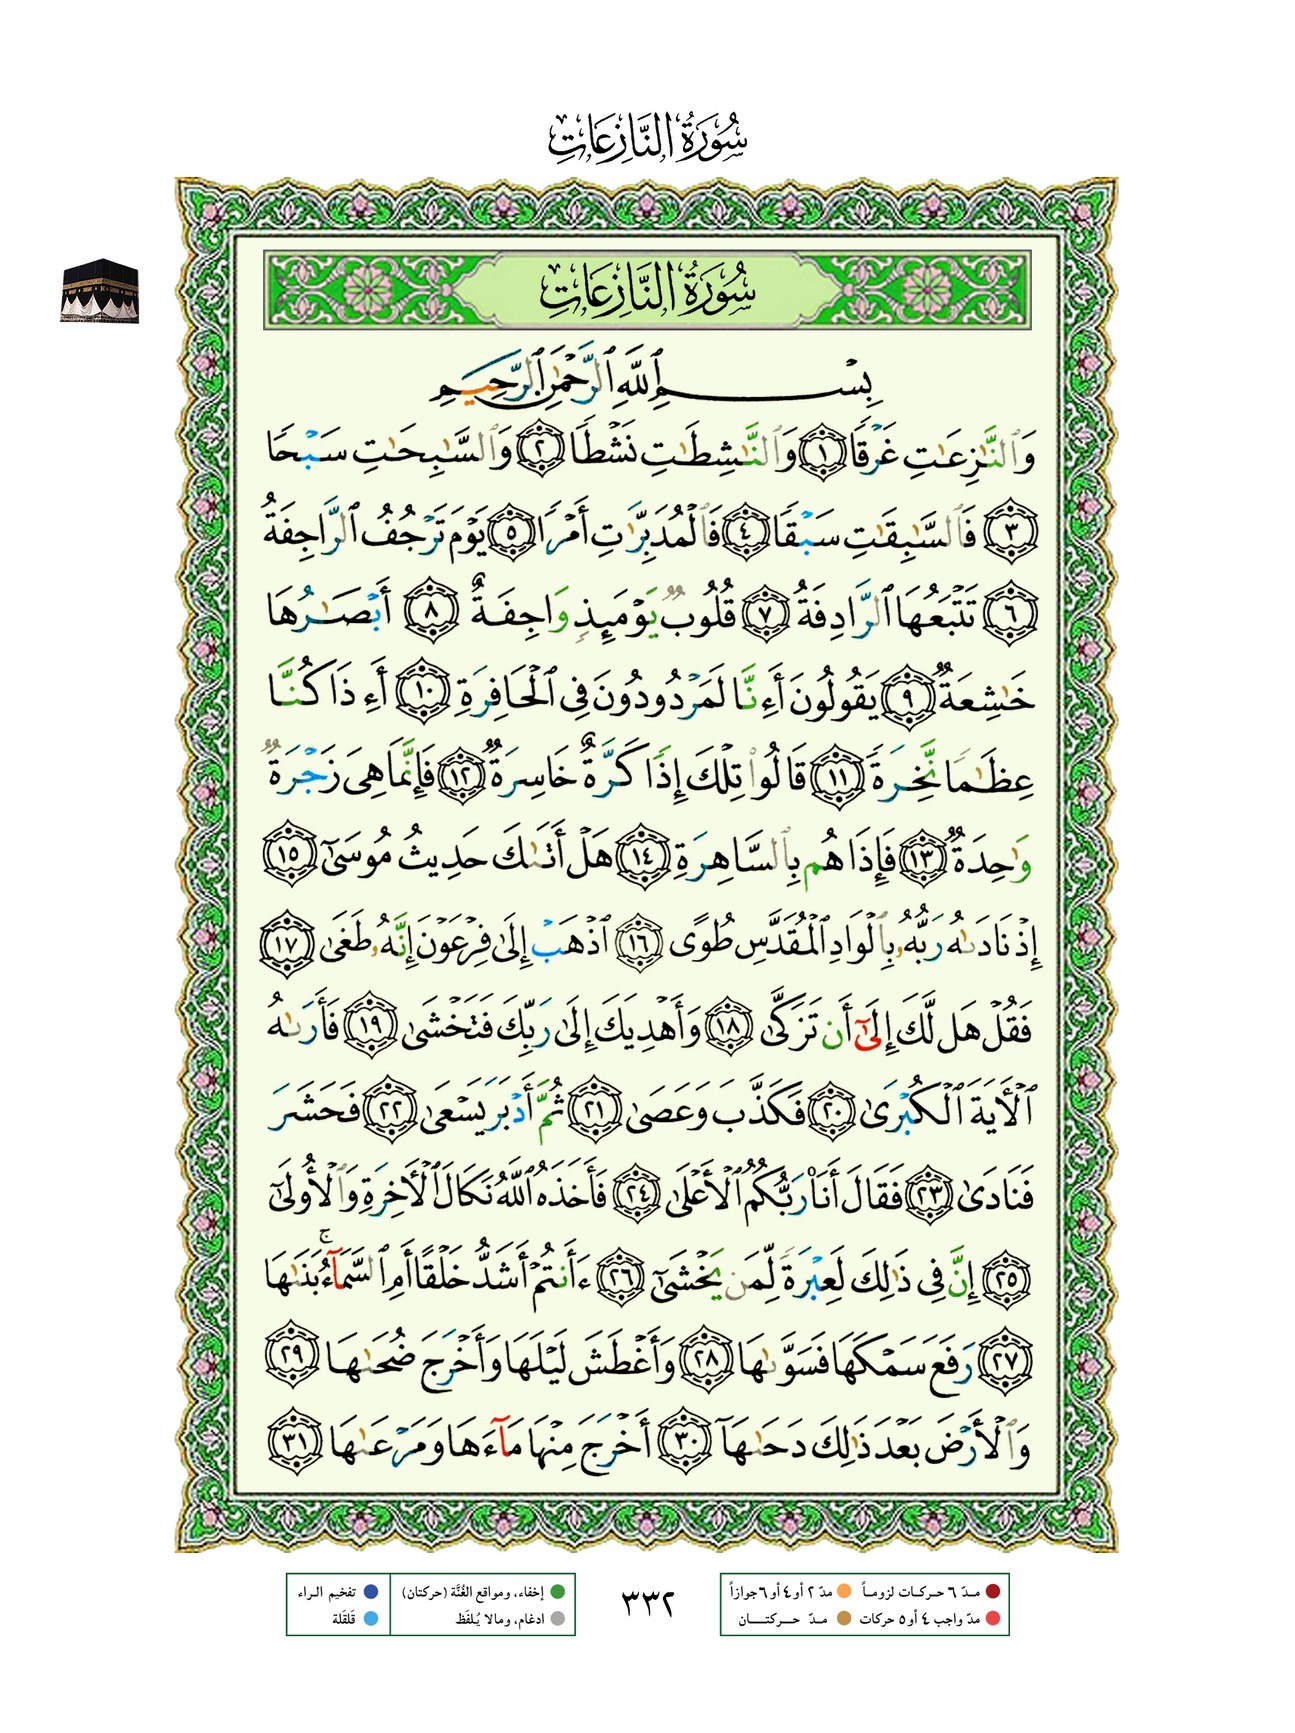 سُورَةُ النَّازِعَاتِ
سُورَةُ النَّازِعَاتِ
بِسْمِ ٱللَّهِ ٱلرَّحْمَٰنِ ٱلرَّحِيمِ
وَٱلنَّٰزِعَٰتِ غَرْقًا ﴿١﴾ وَٱلنَّٰشِطَٰتِ نَشْطًا ﴿٢﴾ وَٱلسَّٰبِحَٰتِ سَبْحًا
﴿٣﴾ فَٱلسَّٰبِقَٰتِ سَبْقًا ﴿٤﴾ فَٱلْمُدَبِّرَٰتِ أَمْرًا ﴿٥﴾ يَوْمَ تَرْجُفُ ٱلرَّاجِفَةُ
﴿٦﴾ تَتْبَعُهَا ٱلرَّادِفَةُ ﴿٧﴾ قُلُوبٌ يَوْمَئِذٍ وَاجِفَةٌ ﴿٨﴾ أَبْصَٰرُهَا
خَٰشِعَةٌ ﴿٩﴾ يَقُولُونَ أَءِنَّا لَمَرْدُودُونَ فِى ٱلْحَافِرَةِ ﴿١٠﴾ أَءِذَا كُنَّا
عِظَٰمًا نَّخِرَةً ﴿١١﴾ قَالُوا۟ تِلْكَ إِذًا كَرَّةٌ خَاسِرَةٌ ﴿١٢﴾ فَإِنَّمَا هِىَ زَجْرَةٌ
وَٰحِدَةٌ ﴿١٣﴾ فَإِذَا هُم بِٱلسَّاهِرَةِ ﴿١٤﴾ هَلْ أَتَىٰكَ حَدِيثُ مُوسَىٰٓ ﴿١٥﴾
إِذْ نَادَىٰهُ رَبُّهُۥ بِٱلْوَادِ ٱلْمُقَدَّسِ طُوًى ﴿١٦﴾ ٱذْهَبْ إِلَىٰ فِرْعَوْنَ إِنَّهُۥ طَغَىٰ ﴿١٧﴾
فَقُلْ هَل لَّكَ إِلَىٰٓ أَن تَزَكَّىٰ ﴿١٨﴾ وَأَهْدِيَكَ إِلَىٰ رَبِّكَ فَتَخْشَىٰ ﴿١٩﴾ فَأَرَىٰهُ
ٱلْءَايَةَ ٱلْكُبْرَىٰ ﴿٢٠﴾ فَكَذَّبَ وَعَصَىٰ ﴿٢١﴾ ثُمَّ أَدْبَرَ يَسْعَىٰ ﴿٢٢﴾ فَحَشَرَ
فَنَادَىٰ ﴿٢٣﴾ فَقَالَ أَنَا۠ رَبُّكُمُ ٱلْأَعْلَىٰ ﴿٢٤﴾ فَأَخَذَهُ ٱللَّهُ نَكَالَ ٱلْءَاخِرَةِ وَٱلْأُولَىٰٓ
﴿٢٥﴾ إِنَّ فِى ذَٰلِكَ لَعِبْرَةً لِّمَن يَخْشَىٰٓ ﴿٢٦﴾ ءَأَنتُمْ أَشَدُّ خَلْقًا أَمِ ٱلسَّمَآءُ ۚ بَنَىٰهَا
﴿٢٧﴾ رَفَعَ سَمْكَهَا فَسَوَّىٰهَا ﴿٢٨﴾ وَأَغْطَشَ لَيْلَهَا وَأَخْرَجَ ضُحَىٰهَا ﴿٢٩﴾
وَٱلْأَرْضَ بَعْدَ ذَٰلِكَ دَحَىٰهَآ ﴿٣٠﴾ أَخْرَجَ مِنْهَا مَآءَهَا وَمَرْعَىٰهَا ﴿٣١﴾
مدّ ٦ حركات لزوماً
مدّ ٢ أو ٤ أو ٦ جوازاً
مدّ واجب ٤ أو ٥ حركات
مدّ حركتان
٣٣٢
إخفاء، ومواقع الغُنَّة (حركتان)
تفخيم الراء
ادغام، ومالا يُلفَظ
قَلقَلة